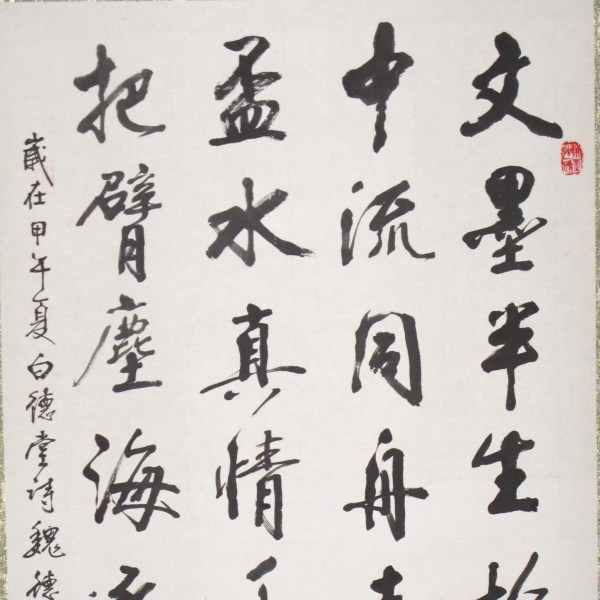 文墨半生
中流同舟
盃水真情
把臂塵海
歲在甲午夏白德堂诗魏德